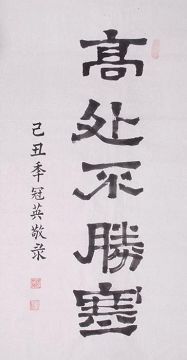 高处不勝寒
己丑季冠英敬录